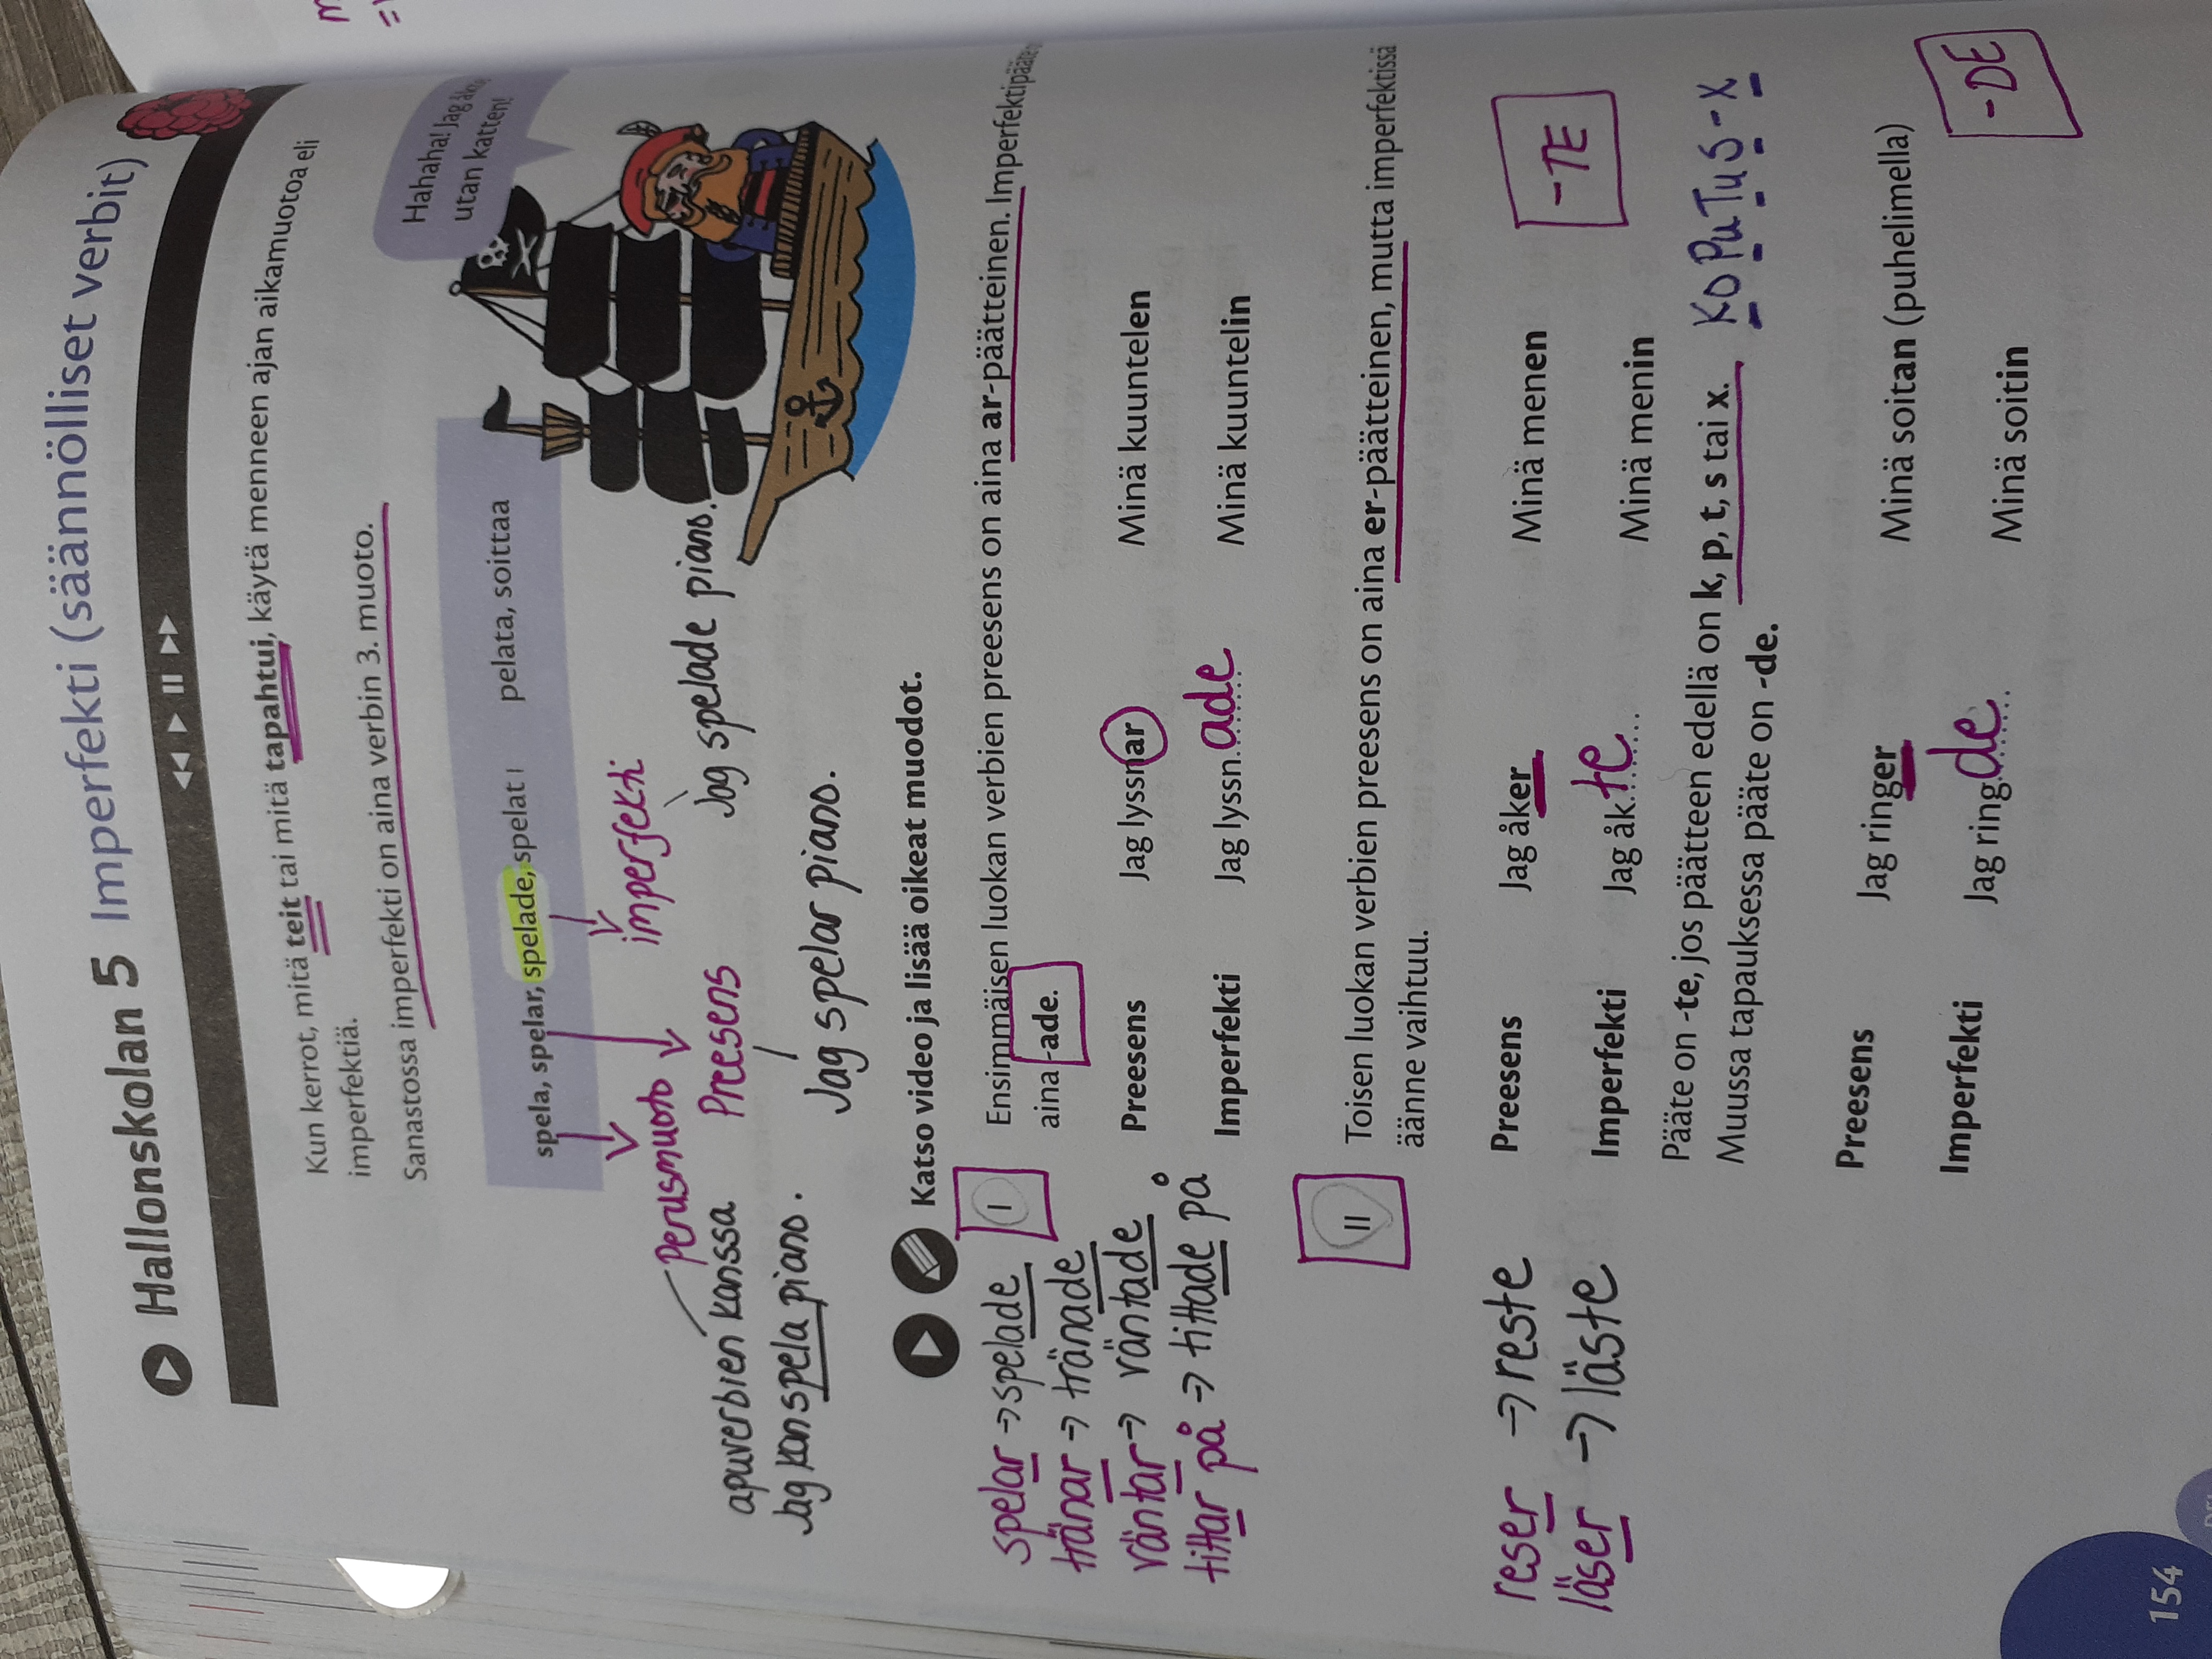 Hallonskolan 5 Imperfekti (säännölliset verbit)
Kun kerrot, mitä teit tai mitä tapahtui, käytä menneen ajan aikamuotoa eli
imperfektiä.
Sanastossa imperfekti on aina verbin 3. muoto.
Hahaha! Jag åkte
utan katten!
spela, spelar, spelade, spelat I pelata, soittaa
Perusmuoto
Preesens
imperfekti
apuverbien kanssa
Jag kan spela piano.
Jag spelar piano.
Jag spelade piano.
Katso video ja lisää oikeat muodot.
I
Ensimmäisen luokan verbien preesens on aina ar-päätteinen. Imperfektipääte
aina -ade.
Preesens Jag lyssnar Minä kuuntelen
Imperfekti Jag lyssn ade Minä kuuntelin
spelar → spelade
tränar → tränade
väntar → väntade
tittar på → tittade på
II
Toisen luokan verbien preesens on aina er-päätteinen, mutta imperfektissä
äänne vaihtuu.
Preesens Jag åker Minä menen
Imperfekti Jag åk te Minä menin
-TE
reser → reste
läser → läste
Pääte on -te, jos päätteen edellä on k, p, t, s tai x. KOPuTuS-X
Muussa tapauksessa pääte on -de.
Preesens Jag ringer Minä soitan (puhelimella)
Imperfekti Jag ring de Minä soitin
-DE
154